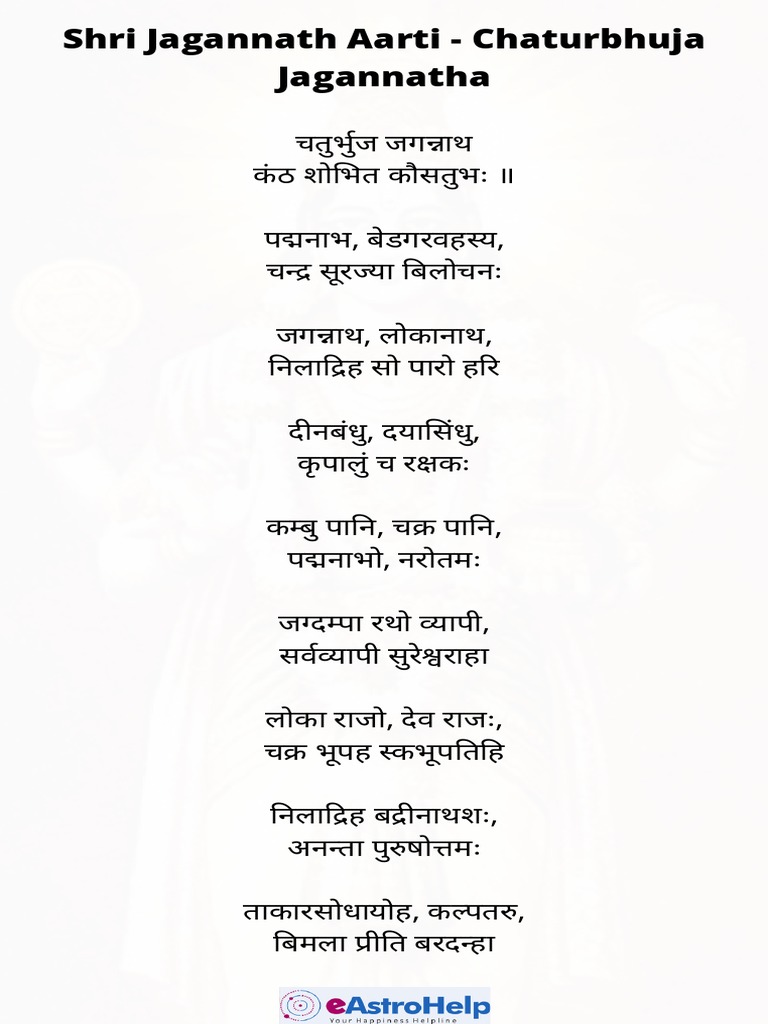 Shri Jagannath Aarti - Chaturbhuja
Jagannatha
चतुर्भुज जगन्नाथ
कंठ शोभित कौसतुभः ॥
पद्मनाभ, बेडगरवहस्य,
चन्द्र सूरज्या बिलोचनः
जगन्नाथ, लोकानाथ,
निलाद्रिह सो पारो हरि
दीनबंधु, दयासिंधु,
कृपालुं च रक्षकः
कम्बु पानि, चक्र पानि,
पद्मनाभो, नरोतमः
जग्दम्पा रथो व्यापी,
सर्वव्यापी सुरेश्वराहा
लोका राजो, देव राजः,
चक्र भूपह स्कभूपतिहि
निलाद्रिह बद्रीनाथशः,
अनन्ता पुरुषोत्तमः
ताकारसोधायोह, कल्पतरु,
बिमला प्रीति बरदन्हा
eAstroHelp
Your Happiness Helpline